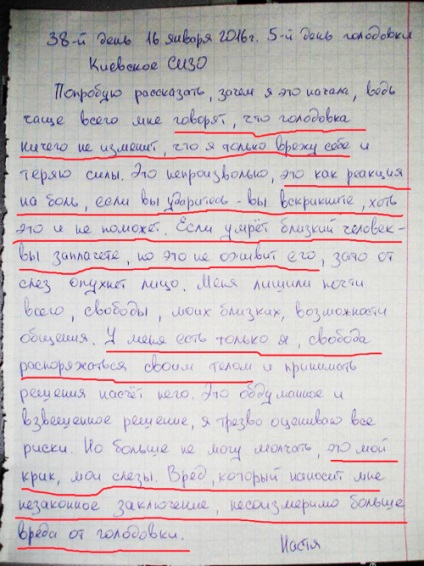 38-й день 16 января 2016г. 5-й день голодовки
Киевское СИЗО
Попробую рассказать, зачем я это начала, ведь
чаще всего мне говорят, что голодовка
ничего не изменит, что я только врежу себе и
теряю силы. Это непроизвольно, это как реакция
на боль, если вы ударитесь - вы вскрикните, хоть
это и не поможет. Если умрёт близкий человек -
вы заплачете, но это не оживит его, зато от
слез опухнет лицо. Меня лишили почти
всего, свободы, моих близких, возможности
общения. У меня есть только я, свобода
распоряжаться своим телом и принимать
решения насчёт него. Это обдуманное и
взвешенное решение, я трезво оцениваю все
риски. Но больше не могу молчать, это мой
крик, мои слезы. Вред, который наносит мне
незаконное заключение, несоизмеримо больше
вреда от голодовки.
Настя